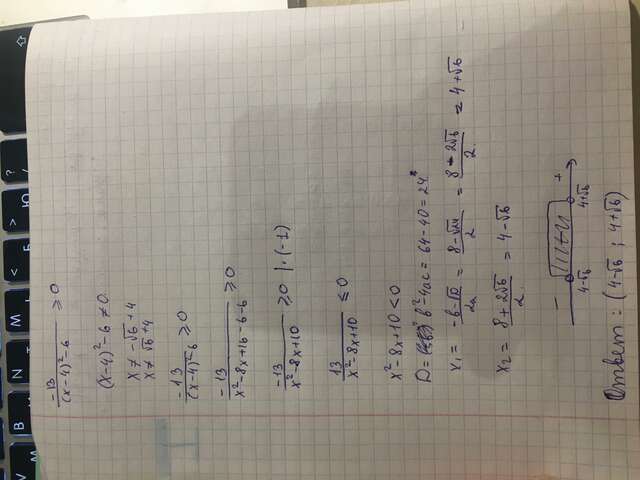 -13/((x-4)²-6) ≥ 0
(x-4)²-6 ≠ 0
x ≠ -√6+4
x ≠ √6+4
-13/((x-4)²-6) ≥ 0
-13/(x²-8x+16-6) ≥ 0
-13/(x²-8x+10) ≥ 0 | · (-1)
13/(x²-8x+10) ≤ 0
x²-8x+10 < 0
D = b²-4ac = 64-40 = 24
x₁ = (-b-√D)/2a = (8-√24)/2 = (8-2√6)/2 = 4+√6
x₂ = (8+2√6)/2 = 4-√6
- +
4-√6 4+√6
Ответ: (4-√6 ; 4+√6)